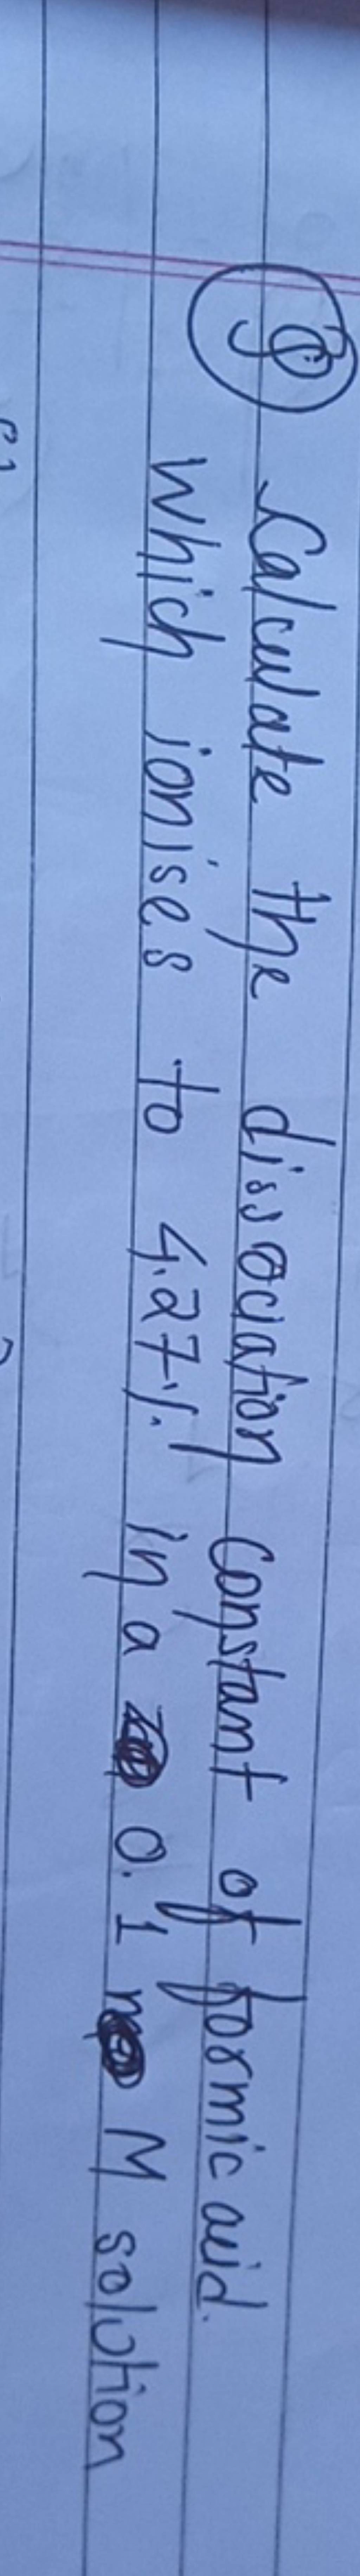 Q Calculate the dissociation constant of formic acid.
which ionises to 4.27% in a 0.1 M solution